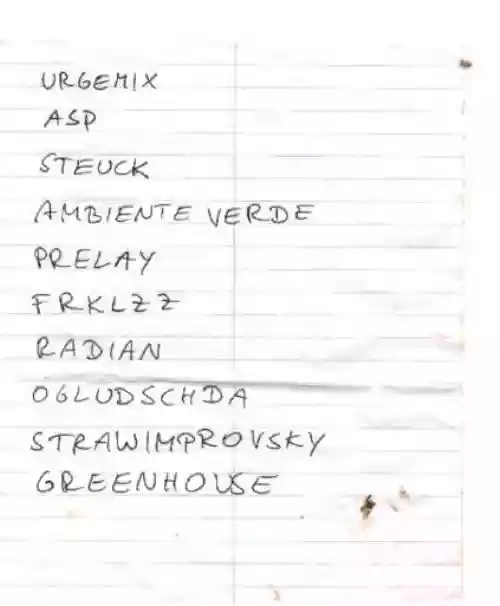 URGEMIX
ASP
STEUCK
AMBIENTE VERDE
PRELAY
FRKLZZ
RADIAN
OGLUDSCHDA
STRAWIMPROVSKY
GREENHOUSE